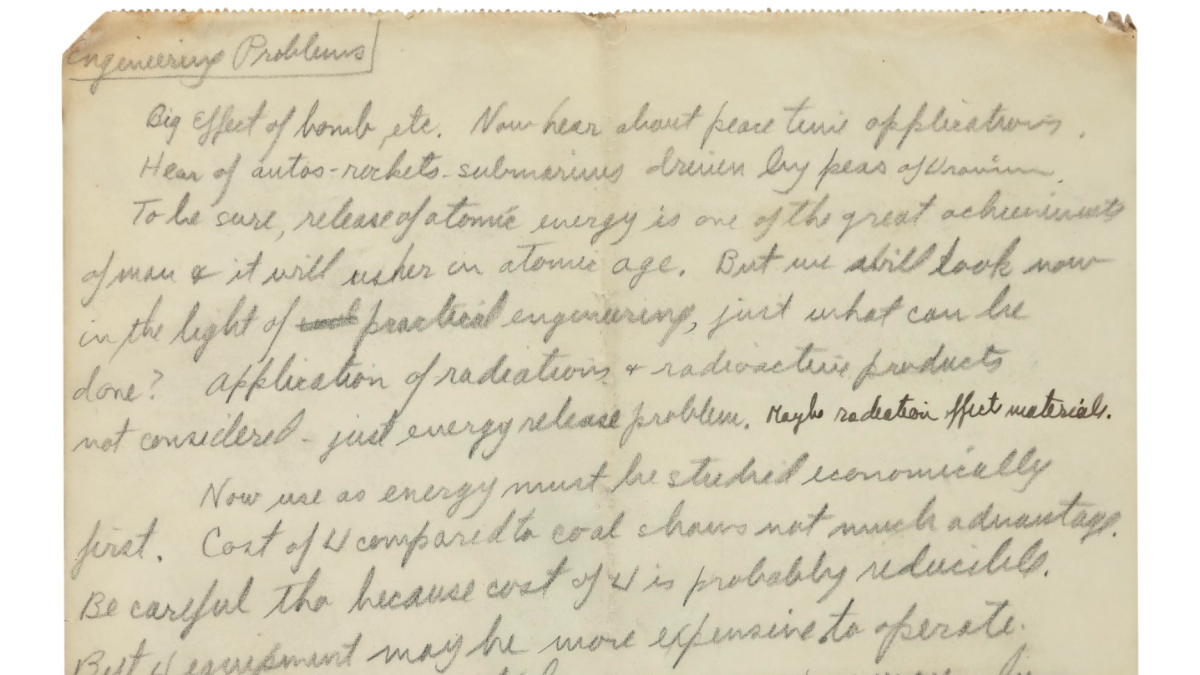 Engineering Problems
Big Effect of bomb, etc. Now hear about peace time applications.
Hear of autos-rockets-submarines driven by peas of Uranium.
To be sure, release of atomic energy is one of the great achievements
of man & it will usher in atomic age. But we will look now
in the light of practical engineering, just what can be
done? Application of radiations & radioactive products
not considered - just energy release problem. Maybe radiation effect materials.
Now use as energy must be studied economically
first. Cost of U compared to coal shows not much advantage.
Be careful tho because cost of U is probably reducible.
But U equipment may be more expensive to operate.